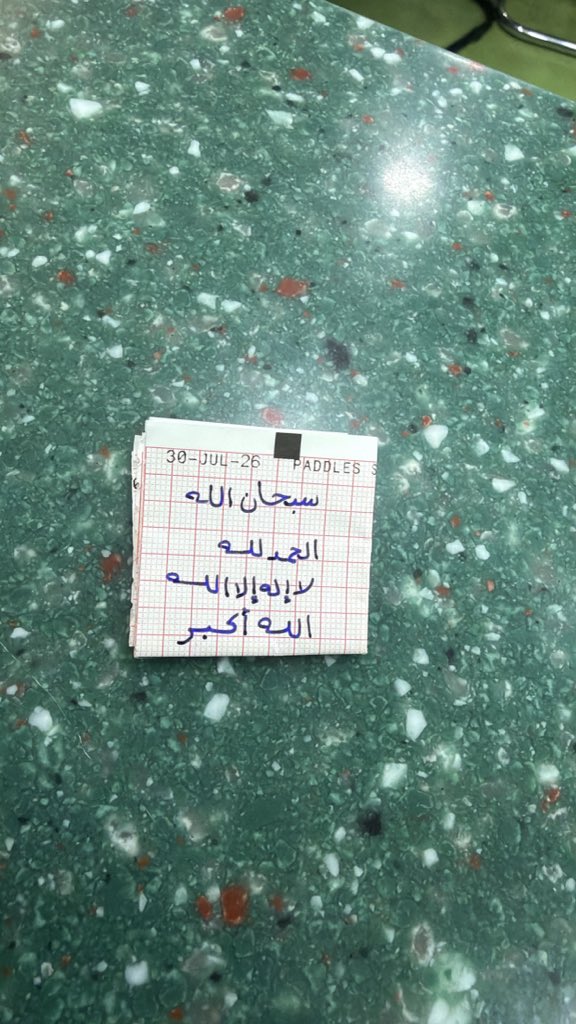 30-JUL-26 PADDLES
سبحان الله
الحمد لله
لا إله إلا الله
الله أكبر